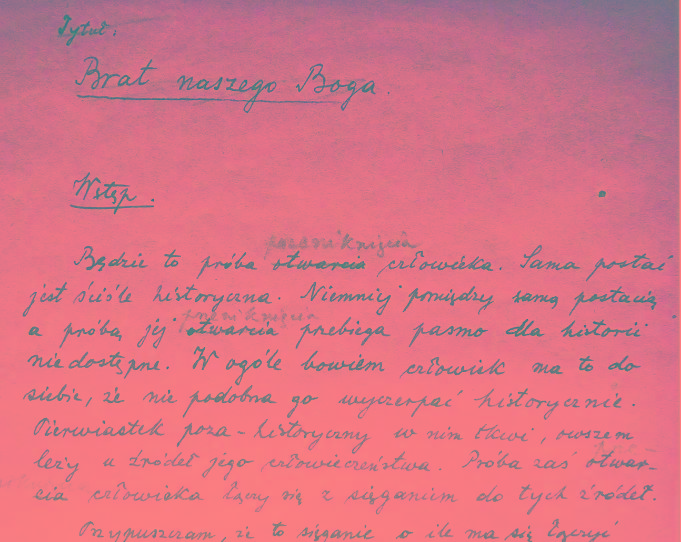 Tytuł:
Brat naszego Boga.
Wstęp.
przeniknięcia
Będzie to próba otwarcia człowieka. Sama postać
jest ściśle historyczna. Niemniej pomiędzy samą postacią,
przeniknięcia
a próbą jej otwarcia przebiega pasmo dla historii
niedostępne. W ogóle bowiem człowiek ma to do
siebie, że nie podobna go wyczerpać historycznie.
Pierwiastek poza-historyczny w nim tkwi, owszem
leży u źródeł jego człowieczeństwa. Próba zaś otwar-
cia człowieka łączy się z sięganiem do tych źródeł.
Przypuszczam, że to sięganie o ile ma się łączyć